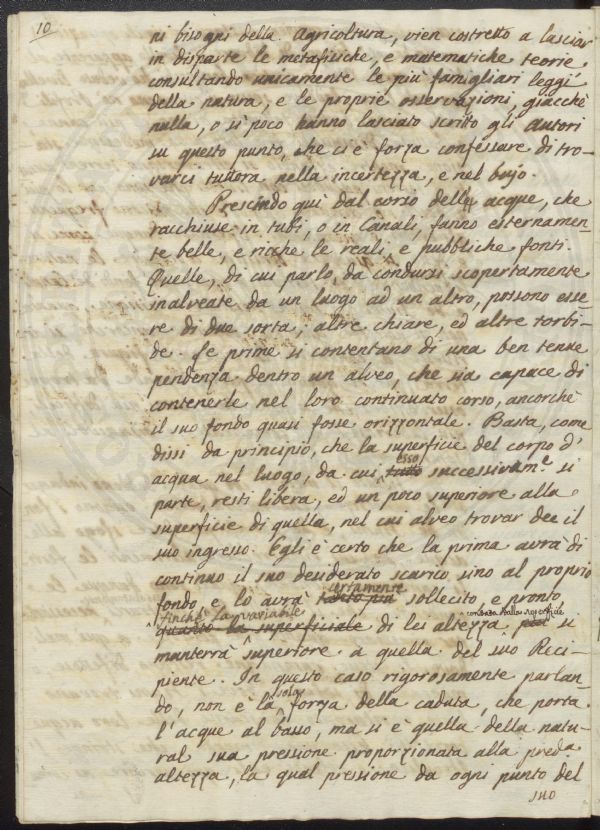 10
ni bisogni della Agricoltura, vien costretto a lasciar
in disparte le metafisiche, e matematiche teorie
consultando unicamente le più famigliari leggi
della natura, e le proprie osservazioni, giacchè
nulla, o sì poco hanno lasciato scritto gli Autori
su questo punto, che ci è forza confessare di tro-
varci tuttora nella incertezza, e nel bujo.
Prescindo quì dal corso delle acque, che
racchiuse in tubi, o in Canali, fanno esternamen-
te belle, e ricche le reali, e pubbliche fonti.
Quelle, di cui parlo, da condursi scopertamente
inalveate da un luogo ad un altro, possono esse-
re di due sorta; altre chiare, ed altre torbi-
de. Le prime si contentano di una ben tenue
pendenza dentro un alveo, che sia capace di
contenerle nel loro continuato corso, ancorchè
il suo fondo quasi fosse orizzontale. Basta, come
dissi da principio, che la superficie del corpo d'
acqua nel luogo, da cui esso successivam.e si
parte, resti libera, ed un poco superiore alla
superficie di quella, nel cui alveo trovar dee il
suo ingresso. Egli è certo che la prima avrà di
continuo il suo desiderato scarico sino al proprio
fondo e lo avrà certamente sollecito, e pronto
finchè la variabile di lei altezza contata dalla superficie si
manterrà superiore a quella del suo Reci-
piente. In questo caso rigorosamente parlan-
do, non è la sola forza della caduta, che porta
l'acque al basso, ma si è quella della natu-
ral sua pressione proporzionata alla pred.a
altezza, la qual pressione da ogni punto del
suo